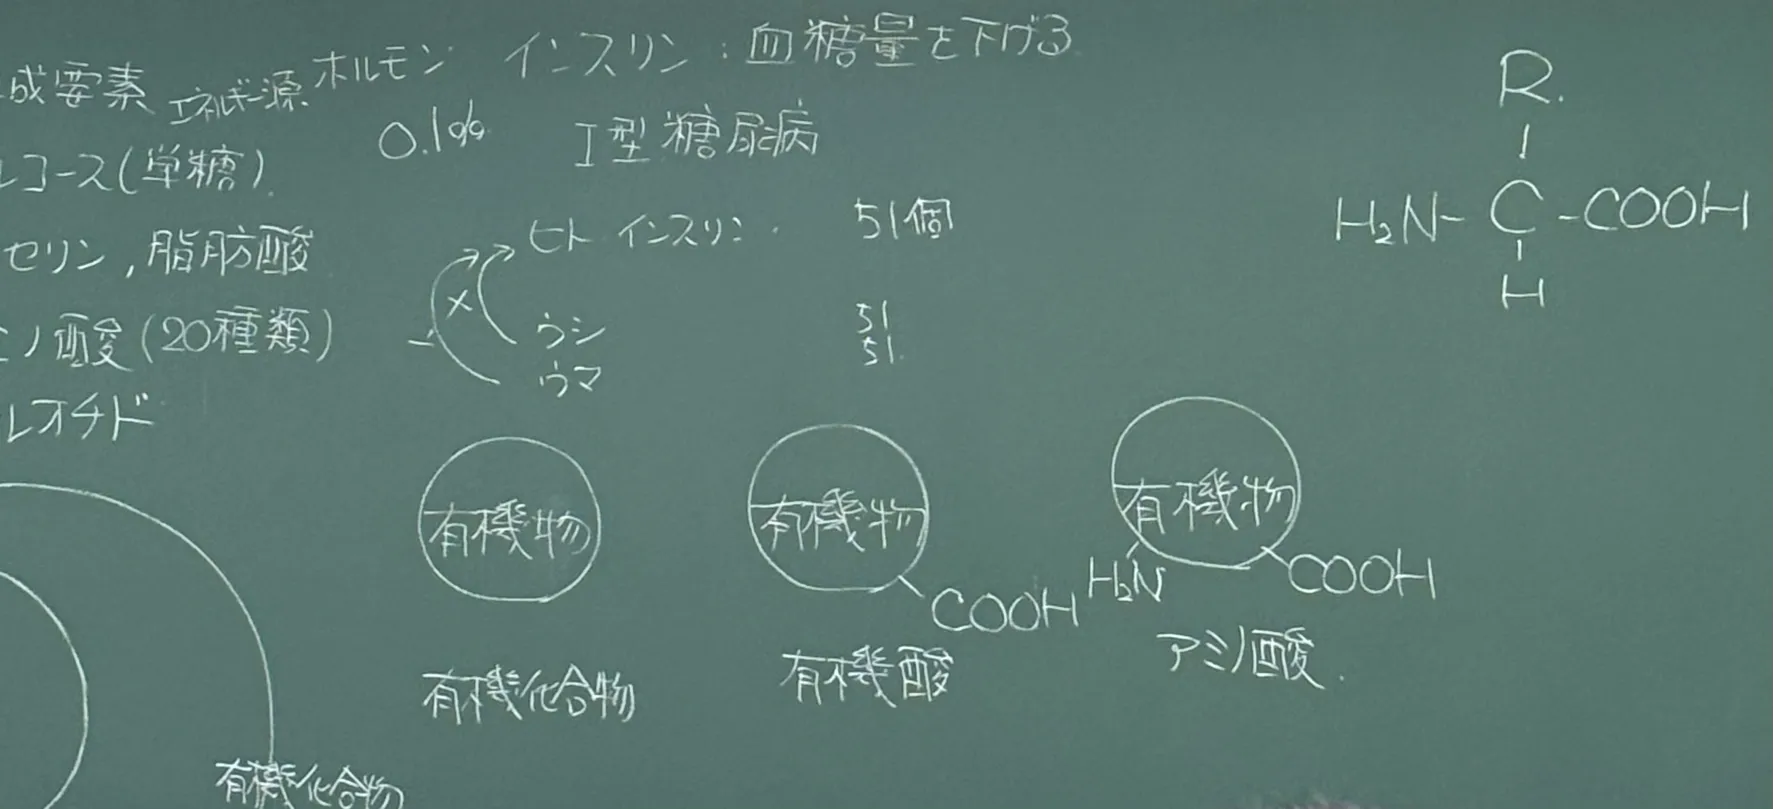 成要素 エネルギー源 ホルモン インスリン:血糖量を下げる
0.1% I型糖尿病
レコース(単糖).
セリン,脂肪酸
ミノ酸(20種類)
レオチド
ヒト インスリン. 51個
×
ウシ 51
ウマ 51.
R.
H₂N-C-COOH
H
有機物
有機化合物
有機物
COOH
有機酸
有機物
H₂N COOH
アミノ酸.
有機化合物